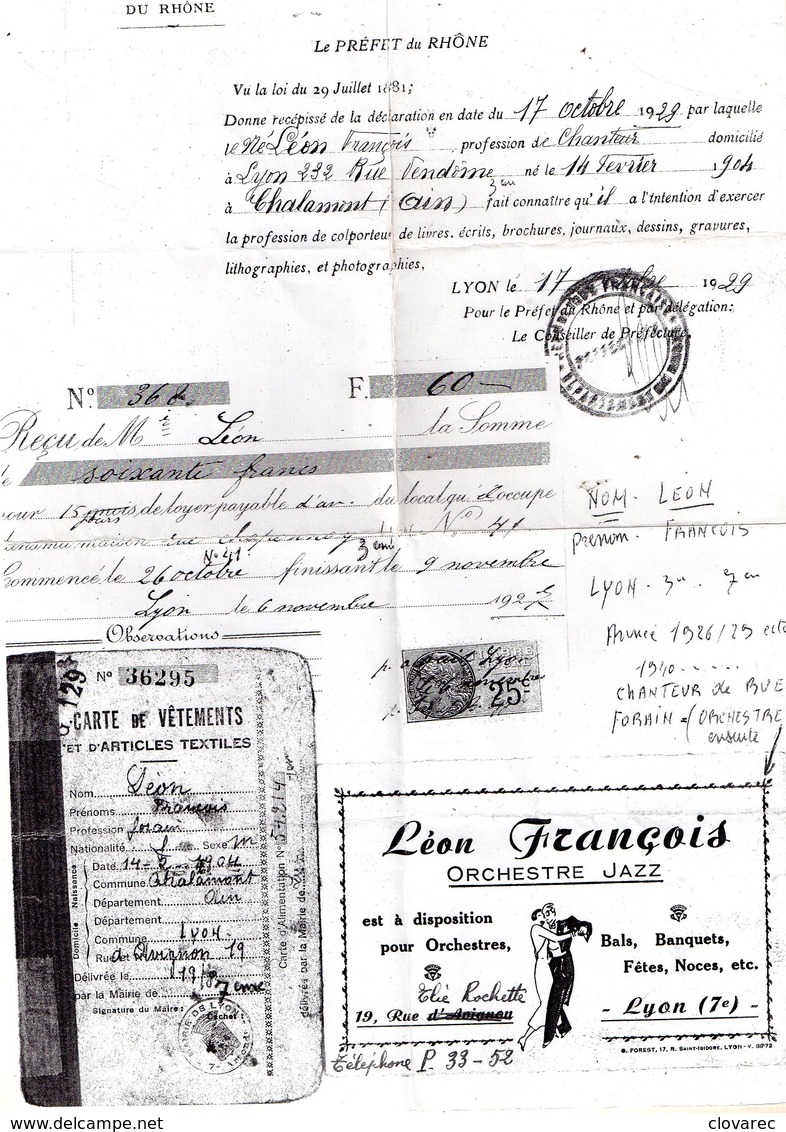 DU RHÔNE
Le PRÉFET du RHÔNE
Vu la loi du 29 Juillet 1881;
Donne recépissé de la déclaration en date du 17 octobre 1929 par laquelle
Léon François profession de Chanteur domicilié
à Lyon 232 Rue Vendôme né le 14 Fevrier 1904
3em
à Chalamont (Ain) fait connaître qu'il a l'intention d'exercer
la profession de colporteur de livres, écrits, brochures, journaux, dessins, gravures,
lithographies, et photographies,
LYON le 17 octobre 1929
Pour le Préfet du Rhône et par délégation:
Le Conseiller de Préfecture,
No. 368 F. 60 —
Reçu de M Léon la Somme
de soixante francs
pour 15 mois de loyer payable d'av. du local qu'il occupe
jours
maison rue No 41
No 41 3em
Commencé le 26 octobre finissant le 9 novembre
Lyon le 6 novembre 192
Observations
25c
NOM. LEON
prenom. FRANCOIS
LYON. 3em. 7em
Année 1926/29 ect
1940.....
CHANTEUR de RUE
FORAIN ORCHESTRE
ensuite
No 36295
CARTE DE VÊTEMENTS
ET D'ARTICLES TEXTILES
Nom Léon
Prénoms François
Profession forain
Nationalité f Sexe m
Naissance
Date 14-2-1904
Commune Chalamont
Département Ain
Domicile
Département
Commune Lyon
Rue d'Avignon 19
Délivrée le
par la Mairie de 7eme
Signature du Maire: Cachet
Carte d'Alimentation No
délivrée par la Mairie de
Léon François
ORCHESTRE JAZZ
est à disposition
pour Orchestres,
Bals, Banquets,
Fêtes, Noces, etc.
Elie Rochette
19, Rue d'Avignon
- Lyon (7e) -
G. FOREST, 17, R. SAINT-ISIDORE, LYON
Téléphone P. 33-52
clovarec